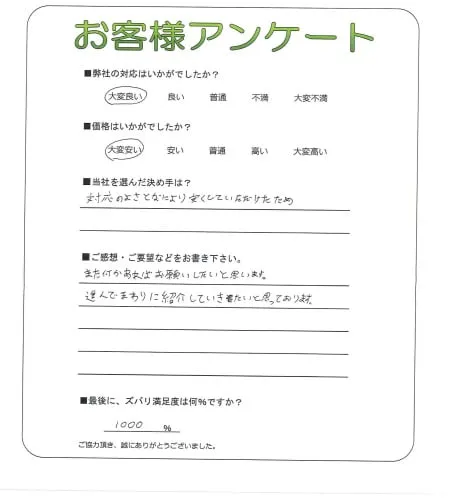 お客様アンケート
■弊社の対応はいかがでしたか？
大変良い 良い 普通 不満 大変不満
■価格はいかがでしたか？
大変安い 安い 普通 高い 大変高い
■当社を選んだ決め手は？
対応のよさとなにより安くしていただけたため
■ご感想・ご要望などをお書き下さい。
また何かあればお願いしたいと思います。
進んでまわりに紹介していきたいと思っております。
■最後に、ズバリ満足度は何％ですか？
1000 ％
ご協力頂き、誠にありがとうございました。